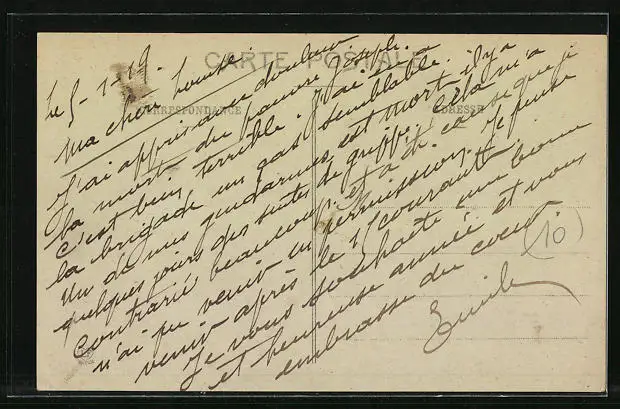 CARTE POSTALE
CORRESPONDANCE
ADRESSE
Le 5-1-19.
Ma chère Louise
J'ai appris avec douleur
la mort du pauvre Joseph.
C'est bien terrible. J'ai eu à
la brigade un cas semblable.
Un de mes gendarmes est mort il y a
quelques jours des suites de grippe. Cela m'a
contrarié beaucoup et a été cause que je
n'ai pu venir en permission. Je pense
venir après le 15 courant.
Je vous souhaite une bonne
et heureuse année et vous
embrasse du coeur
Emile
(10)